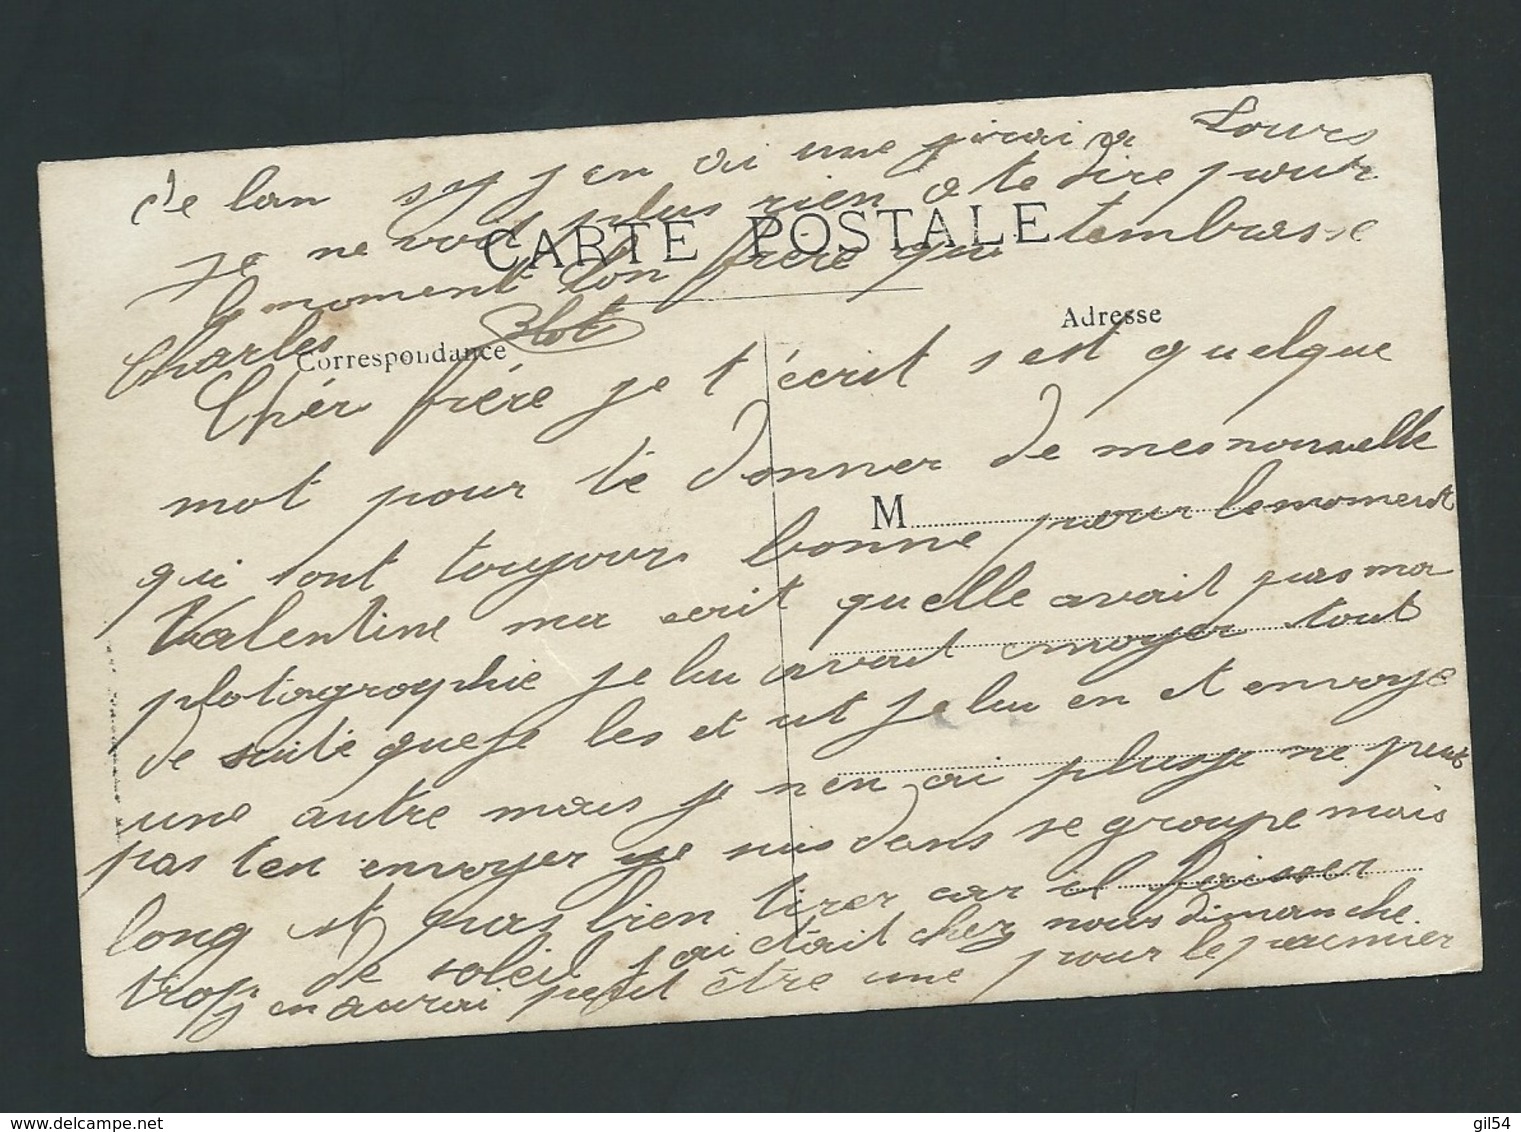 de lan sy j en ai une j irai a Tours
je ne voit plus rien a te dire pour
le moment ton frère qui tembrasse
Charles
CARTE POSTALE
Correspondance
Adresse
M
Chér frére je t'écrit s est quelque
mot pour te donner de mes nouvelle
qui sont toujours bonne pour le moment
Valentine ma ecrit quelle avait pas ma
photographie je lui avait envoyer tout
de suite que je les et ut je lui en et envoye
une autre mais je nen ai plus je ne peut
pas ten envoyer je suis dans se groupe mais
long et pas bien tirer car il faisser
trop de soleil j ai était chez nous dimanche.
j en aurai petit être une pour le premier
gil54